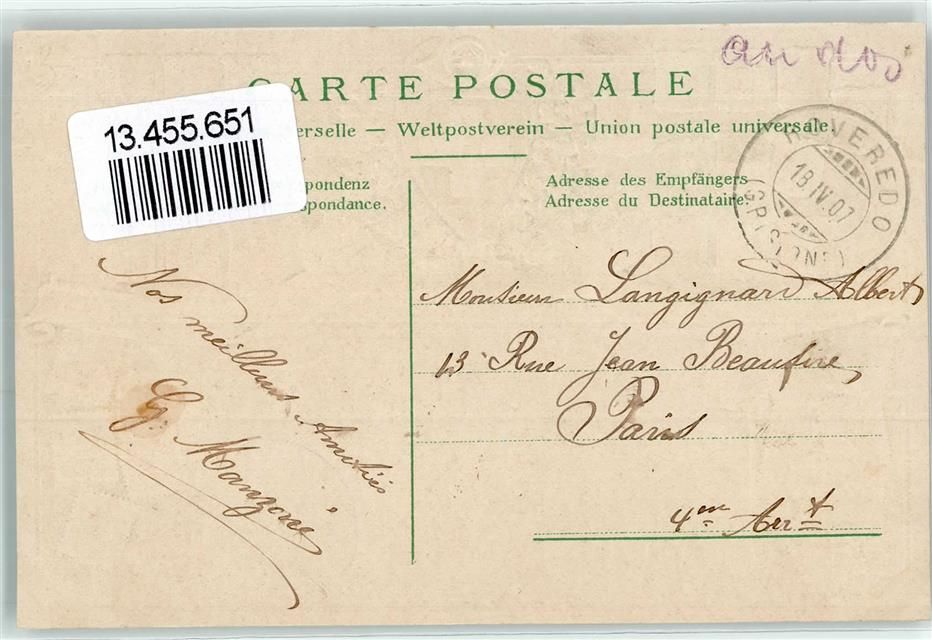 CARTE POSTALE
13.455.651
erselle — Weltpostverein — Union postale universale.
pondenz
spondance.
Adresse des Empfängers
Adresse du Destinataire.
ROVEREDO
18 IV.07
(GRISONS)
Nos meilleurs Amitiés
G. Manzoni
Monsieur Langignard Albert
13 Rue Jean Beausire
Paris
4em Arrt